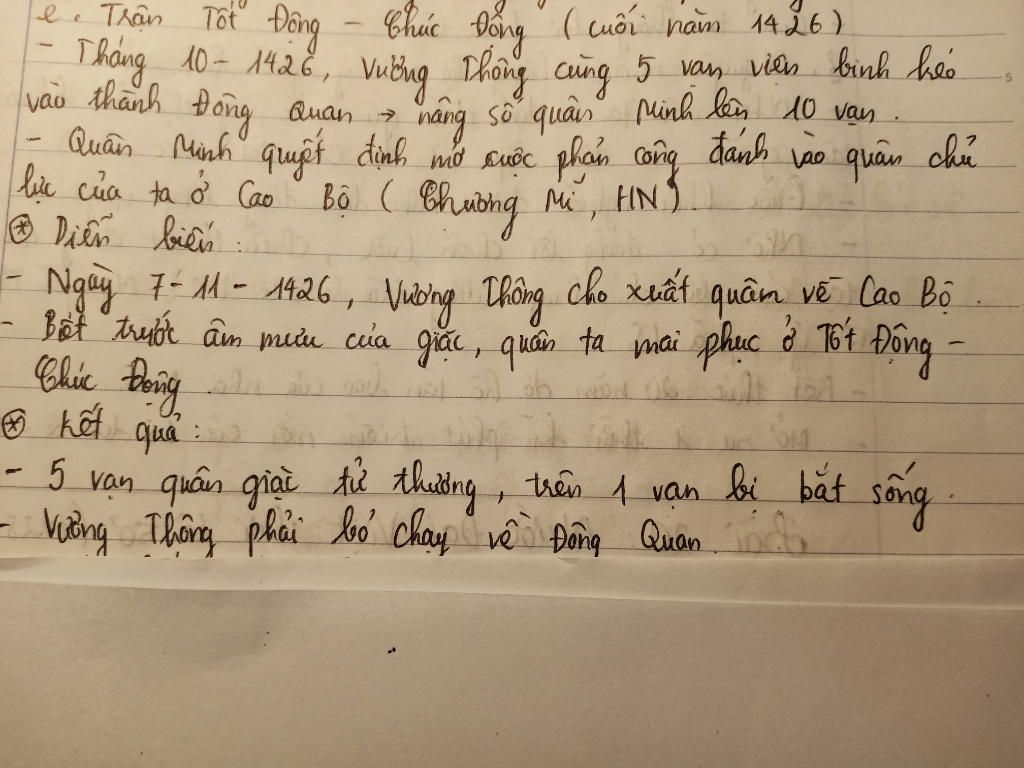 e. Trận Tốt Động - Chúc Động (cuối năm 1426)
- Tháng 10 - 1426, Vương Thông cùng 5 vạn viện binh kéo
vào thành Đông Quan → nâng số quân Minh lên 10 vạn.
- Quân Minh quyết định mở cuộc phản công đánh vào quân chủ
lực của ta ở Cao Bộ (Chương Mĩ, HN)
⊛ Diễn biến:
- Ngày 7 - 11 - 1426, Vương Thông cho xuất quân về Cao Bộ.
- Biết trước âm mưu của giặc, quân ta mai phục ở Tốt Động -
Chúc Động.
⊛ Kết quả:
- 5 vạn quân giặc tử thương, trên 1 vạn bị bắt sống.
- Vương Thông phải bỏ chạy về Đông Quan.